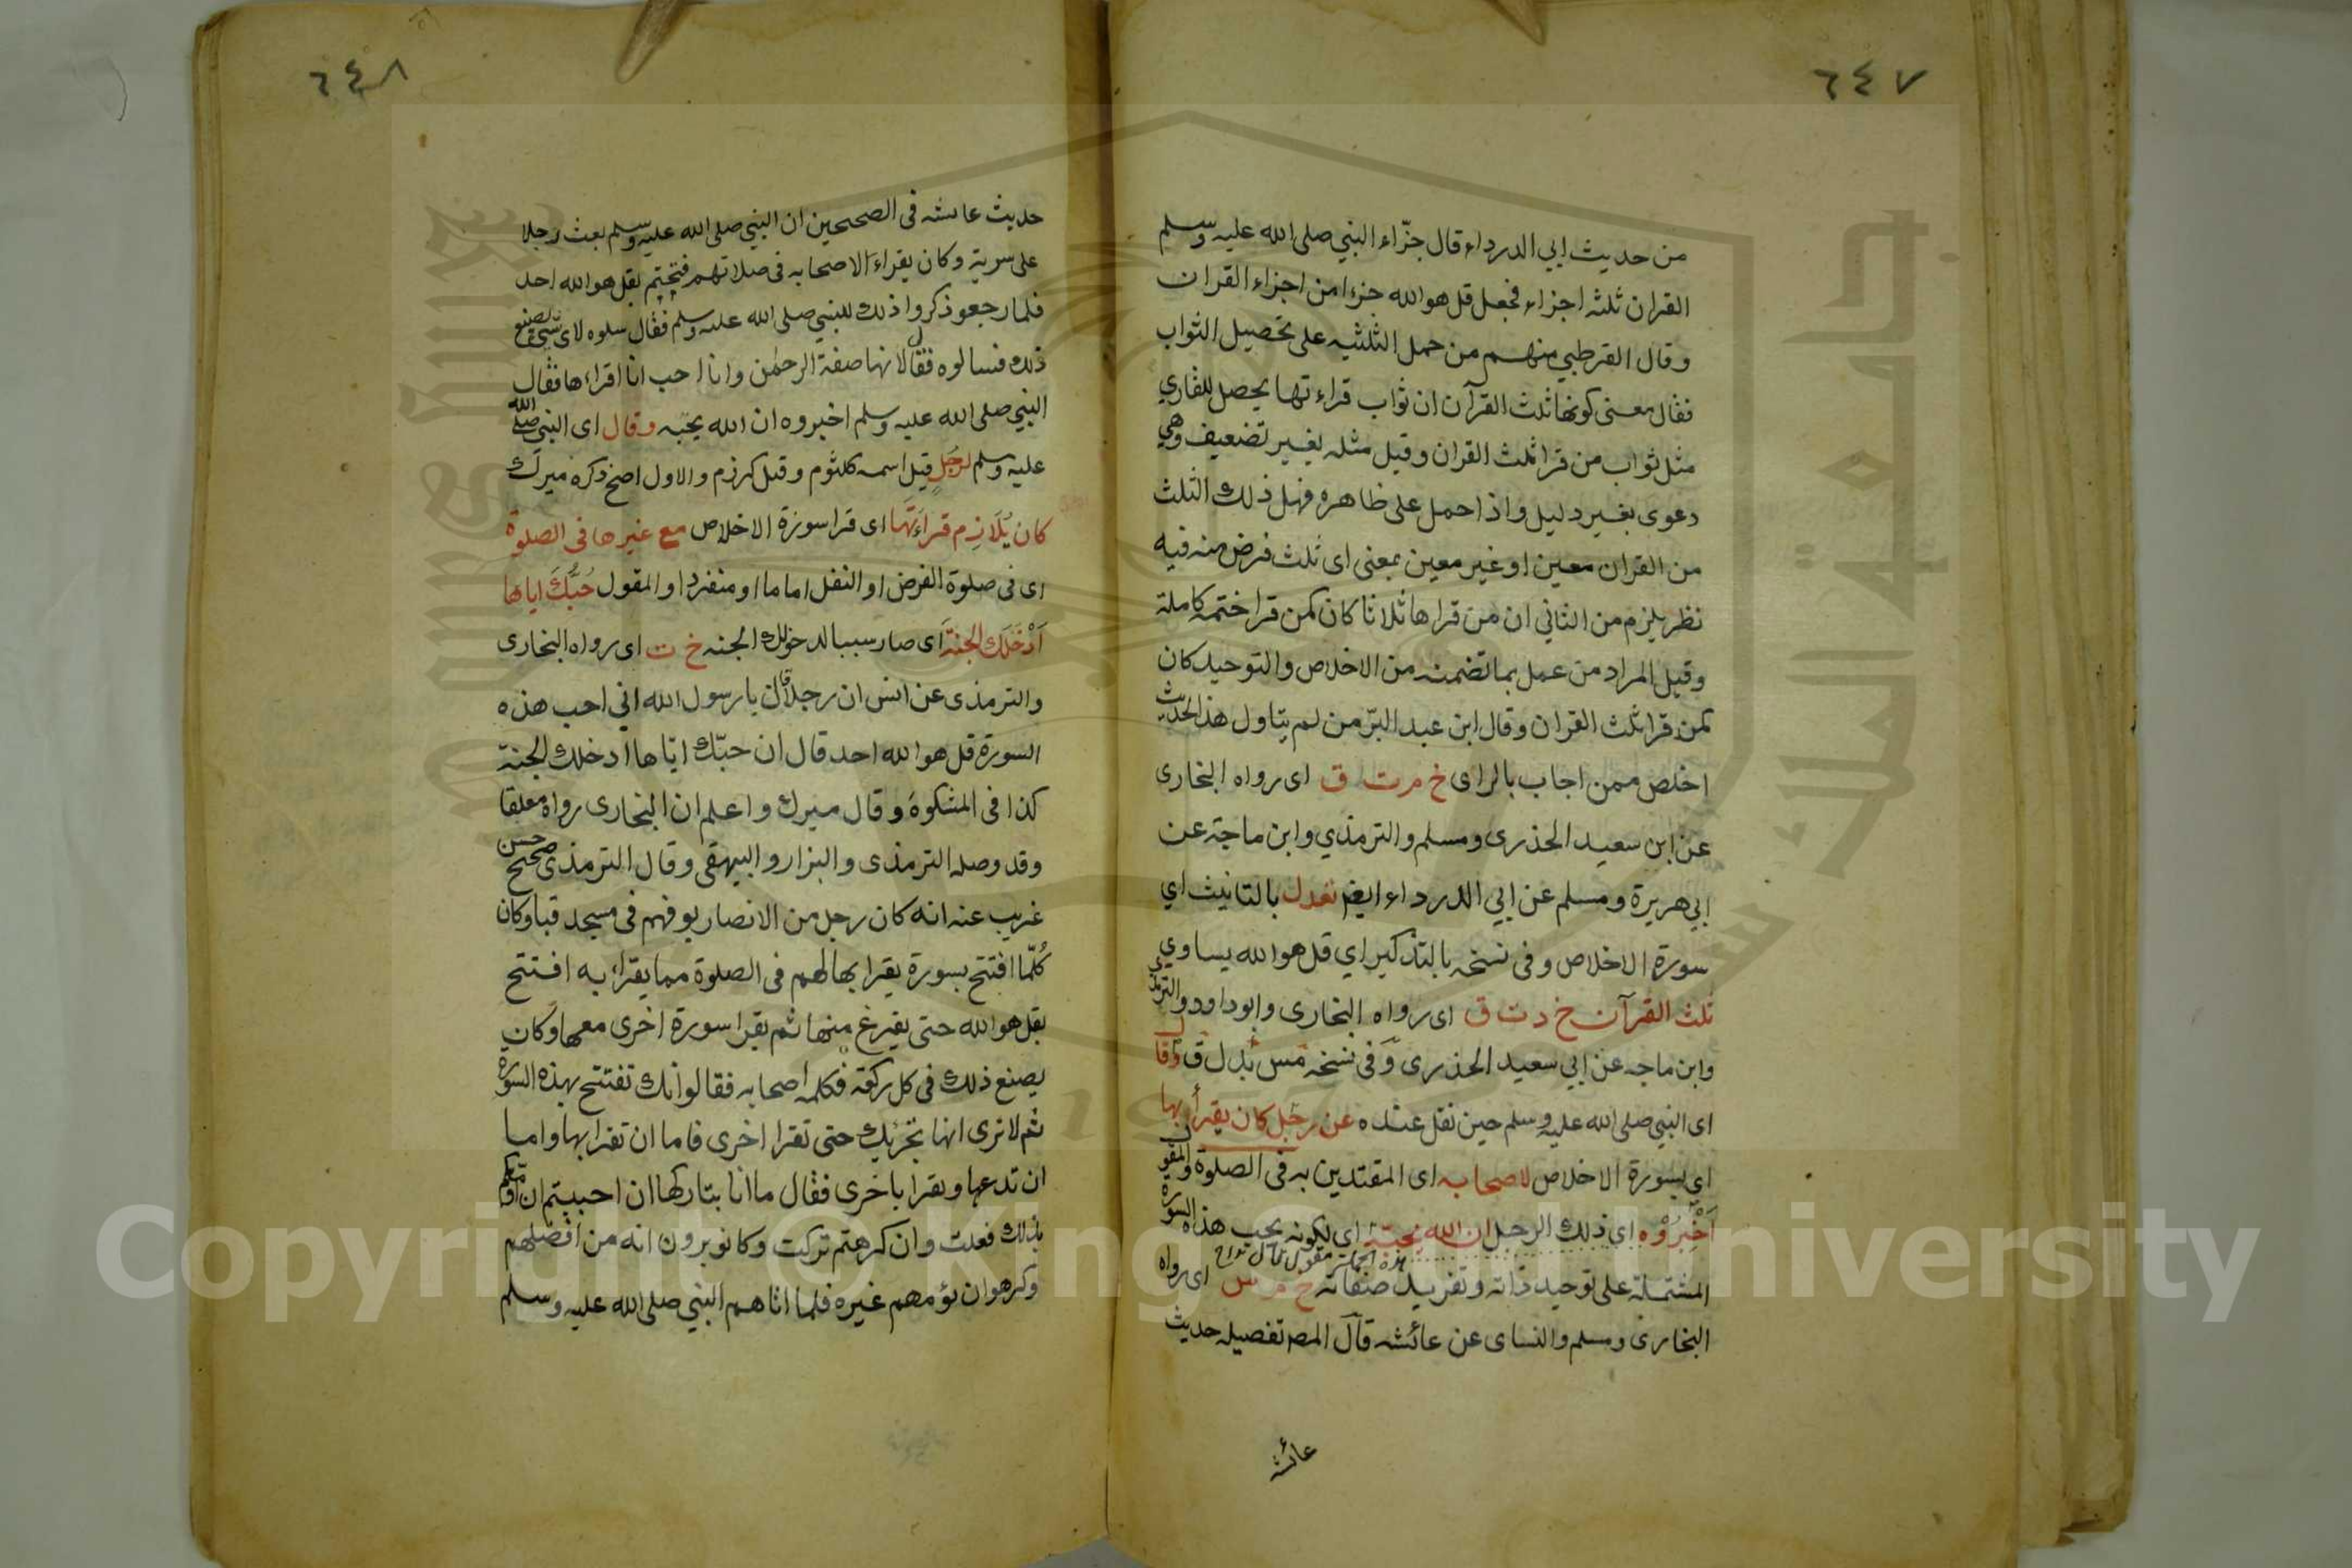 ٦٤٧
من حديث ابي الدرداء قال جزّاء النبي صلى الله عليه وسلم
القران ثلثه اجزاء فجعل قل هو الله جزءا من اجزاء القران
وقال القرطبي منهم من حمل الثلثيه على تحصيل الثواب
فقال معنى كونها ثلث القرآن ان ثواب قراءتها يحصل للقاري
مثل ثواب من قرا ثلث القران وقيل مثله بغير تضعيف وهي
دعوى بغير دليل واذا حمل على ظاهره فهل ذلك الثلث
من القران معين او غير معين بمعنى اى ثلث فرض منه فيه
نظر يلزم من الثاني ان من قراها ثلاثا كان كمن قرا ختمه كاملة
وقيل المراد من عمل بما تضمنه من الاخلاص والتوحيد كان
كمن قرا ثلث القران وقال ابن عبد البرّ من لم يتاول هذا الحديث
اخلص ممن اجاب بالراى خ م ت ق اى رواه البخارى
عن ابن سعيد الخذرى ومسلم والترمذي وابن ماجة عن
ابي هريرة ومسلم عن ابي الدرداء ايضا تعدل بالتانيث اي
سورة الاخلاص وفى نسخه بالتذكير اي قل هو الله يساوي
ثلث القرآن خ د ت ق اى رواه البخارى وابو داود والترمذي
وابن ماجه عن ابي سعيد الخذرى وفى نسخه مس بدل ق وقال
اى النبي صلى الله عليه وسلم حين نقل عنده عن رجل كان يقرأ بها
اي بسورة الاخلاص لاصحابه اى المقتدين به فى الصلوة والمقول
اَخْبِرُوْه اي ذلك الرجل ان الله يحبّه اي لكونه يحب هذه السورة
هذه الجملة مقول قال
المشتملة على توحيد ذاته وتفريد صفاته خ م س اى رواه
البخارى ومسلم والنساى عن عائشه قال المص تفصيله حديث
عائشه
٦٤٨
حديث عائشه فى الصحيحين ان النبي صلى الله عليه وسلم بعث رجلا
على سرية وكان يقراء لاصحابه فى صلاتهم فيختم بقل هو الله احد
فلما رجعو ذكروا ذلك للنبي صلى الله عليه وسلم فقال سلوه لاى شىء يصنع
ذلك فسالوه فقال لانها صفة الرحمن وانا احب ان اقراءها فقال
النبي صلى الله عليه وسلم اخبروه ان الله يحبّه وقال اى النبي صلى الله
عليه وسلم لرجل قيل اسمه كلثوم وقيل كرزم والاول اصح ذكره ميرك
كان يُلَازِم قراءَتَها اى قرا سورة الاخلاص مع غيرها فى الصلوة
اى فى صلوة الفرض او النفل اماما او منفردا والمقول حُبُّكَ اياها
اَدْخَلَك الجنّة اى صار سببا لدخولك الجنه خ ت اى رواه البخارى
والترمذى عن انس ان رجلا قال يا رسول الله اني احب هذه
السورة قل هو الله احد قال ان حبّك ايّاها ادخلك الجنة
كذا فى المشكوة وقال ميرك واعلم ان البخارى رواه معلقا
وقد وصله الترمذى والبزار والبيهقى وقال الترمذى حسن صحيح
غريب عنه انه كان رجل من الانصار يؤفهم فى مسجد قبا وكان
كُلّما افتتح بسورة يقرا بها لهم فى الصلوة مما يقراء به افتتح
بقل هو الله حتى يفرغ منها ثم يقرا سورة اخرى معها وكان
يصنع ذلك فى كل ركعة فكلمه اصحابه فقالوا انك تفتتح بهذه السورة
ثم لا ترى انها تجزيك حتى تقرا اخرى فاما ان تقرا بها واما
ان تدعها وتقرا باخرى فقال ما انا بتاركها ان احببتم ان
بذلك فعلت وان كرهتم تركت وكانو يرون انه من افضلهم
وكرهو ان يؤمهم غيره فلما اتاهم النبي صلى الله عليه وسلم
Copyright © King Saud University
جامعة الملك سعود